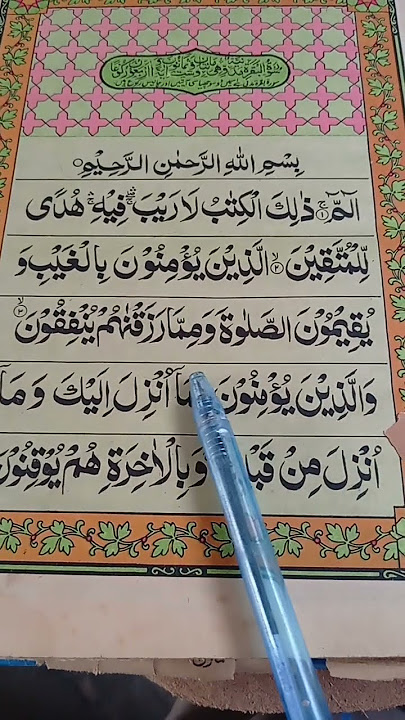 بِسْمِ اللهِ الرَّحْمٰنِ الرَّحِيْمِ
الٓمّٓ ۚ ۱ ذٰلِكَ الْكِتٰبُ لَا رَيْبَ ۛ فِيْهِ ۛ هُدًى
لِّلْمُتَّقِيْنَ ۙ ۲ الَّذِيْنَ يُؤْمِنُوْنَ بِالْغَيْبِ وَ
يُقِيْمُوْنَ الصَّلٰوةَ وَمِمَّا رَزَقْنٰهُمْ يُنْفِقُوْنَ ۙ ۳
وَالَّذِيْنَ يُؤْمِنُوْنَ مَآ اُنْزِلَ اِلَيْكَ وَ مَآ
اُنْزِلَ مِنْ وَبِالْاٰخِرَةِ هُمْ يُوْقِنُوْنَ